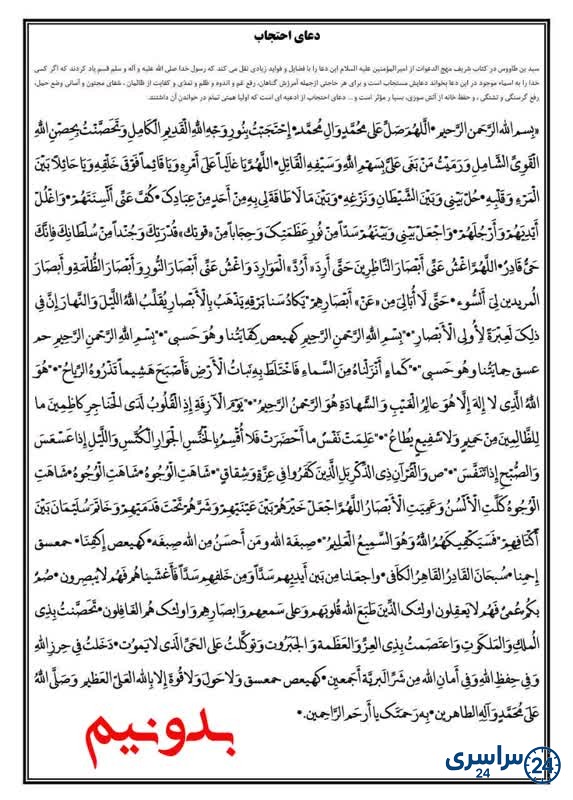 دعای احتجاب
سید بن طاووس در کتاب شریف مهج الدعوات از امیرالمؤمنین علیه السلام این دعا را با فضایل و فواید زیادی نقل می کند که رسول خدا صلی الله علیه و آله و سلم قسم یاد کردند که اگر کسی
خدا را به اسماء موجود در این دعا بخواند دعایش مستجاب است و برای هر حاجتی ازجمله آمرزش گناهان، رفع غم و اندوه و ظلم و تعدّی و کفایت از ظالمان ، شفای مجنون و آسانی وضع حمل،
رفع گرسنگی و تشنگی ، و حفظ خانه از آتش سوزی، بسیا ر مؤثر است و... دعای احتجاب از ادعیه ای است که اولیا همتی تمام در خواندن آن داشتند.
«بِسمِ اللهِ الرَّحمنِ الرَّحیمِ • اللّهُمَّ صَلِّ عَلی مُحَمَّدٍ وَالِ مُحَمَّد • إِحتَجَبْتُ بِنُورِ وَجهِ اللهِ القَدیمِ الکامِلِ وَ تَحَصَّنتُ بِحِصنِ اللهِ
القَوِیِّ الشّامِلِ وَ رَمَیْتُ مَنْ بَغی عَلَیَّ بِسَهمِ اللهِ وَ سَیْفِهِ القاتِلِ • اَللّهُمَّ یا غالِباً عَلی أَمْرِهِ وَ یا قائِماً فَوقَ خَلقِهِ وَ یا حائِلاً بَینَ
المَرءِ وَ قَلبِهِ • حُلْ بَیْنی وَ بَیْنَ الشَّیْطانِ وَ نَزغِهِ • وَ بَینَ ما لا طاقَةَ لی بِهِ مِنْ أَحَدٍ مِنْ عِبادِکَ • کُفَّ عَنّی أَلْسِنَتَهُمْ • وَاغْلُلْ
أَیْدِیَهُمْ وَ أَرْجُلَهُمْ • وَاجْعَلْ بَیْنی وَ بَیْنَهُمْ سَدّاً مِنْ نُورِ عَظَمَتِکَ وَ حِجاباً مِنْ «قوتِکَ» قُدْرَتِکَ وَ جُنْداً مِنْ سُلطانِکَ فَإِنَّکَ
حَیٌّ قادِرٌ • اَللّهُمَّ اغْشَ عَنّی أَبْصارَ النّاظِرینَ حَتّی أَرِدَ «أَرُدَّ» المَوارِدَ وَاغْشَ عَنّی أَبْصارَ النُّورِ وَ أَبْصارَ الظُّلْمَةِ و أَبصارَ
المُریدینَ لِیَ السُّوءَ • حَتّی لا أُبالِیَ مِن «عَنْ» أَبصارِهِمْ • "یَکادُ سَنا بَرقِهِ یَذْهَبُ بِالأَبْصارِ یُقَلِّبُ اللهُ اللَّیْلَ وَ النَّهارَ إِنَّ فی
ذلِکَ لَعِبرَةً لِأُولِی الأَبْصارِ" • "بِسْمِ اللهِ الرَّحْمنِ الرَّحیمِ کهیعص کِفایَتُنا وَ هُوَ حَسبی" • "بِسْمِ اللهِ الرَّحمنِ الرَّحیمِ حم
عسق حِمایَتُنا و هُوَ حَسبی" • "کَماءٍ أَنْزَلْناهُ مِنَ السَّماءِ فَاخْتَلَطَ بِهِ نَباتُ الأَرْضِ فَأَصبَحَ هَشیماً تَذْرُوهُ الرِّیاحُ" • "هُوَ
اللهُ الَّذی لا إِلهَ إِلّا هُوَ عالِمُ الغَیْبِ وَ الشَّهادَةِ هُوَ الرَّحْمنُ الرَّحیمُ" • "یَومَ الآزِفَةِ إِذِ القُلُوبُ لَدَی الحَناجِرِ کاظِمینَ ما
لِلظّالِمینَ مِنْ حَمیمٍ وَ لا شَفیعٍ یُطاعُ" • "عَلِمَتْ نَفْسٌ ما أَحضَرَت فَلا أُقْسِمُ بِالخُنَّسِ الجَوارِ الکُنَّسِ وَ اللَّیْلِ إِذا عَسْعَسَ
وَ الصُّبْحِ إِذا تَنَفَّسَ" • "ص وَ القُرْآنِ ذِی الذِّکْرِ بَلِ الَّذینَ کَفَرُوا فی عِزَّةٍ وَ شِقاقٍ" • شاهَتِ الوُجُوهُ • شاهَتِ الوُجُوهُ • شاهَتِ
الوُجُوهُ کَلَّتِ الأَلْسُنُ وَ عَمِیَتِ الأَبْصارُ اَللّهُمَّ اجْعَلْ خَیْرَهُمْ بَیْنَ عَیْنَیْهِمْ وَ شَرَّهُمْ تَحْتَ قَدَمَیْهِمْ وَ خاتَمَ سُلَیْمانَ بَیْنَ
أَکْتافِهِمْ "فَسَیَکْفیکَهُمُ اللهُ وَ هُوَ السَّمیعُ العَلیمُ" • صِبغَةَ الله و مَن أَحسَنُ مِن الله صِبغَة • کهیعص إکفِنا • حمعسق
إحمِنا • سُبحَانَ القَادِرُ القَاهِرُ الکَافی • واجعَلنا مِن بَین أَیدیهِم سَدّاً وَ مِن خَلفِهِم سَدّاً فَأَغشَیناهُم فَهُم لا یُبصِرون • صُمٌّ
بکُمٌ عُمیٌ فَهُم لا یَعقِلون اولئک الَّذینَ طَبَعَ الله قُلوبَهُم وَ عَلی سَمعِهِم وَ ابصارِهِم وَ اولئک هُم الغافِلون • تَحَصَّنتُ بِذی
المُلکِ وَ المَلَکوت وَ اعتَصَمتُ بِذِی العِزِّ وَ العَظَمَة وَ الجَبَروت وَ تَوَکَّلتُ عَلَی الحَیِّ الَّذی لا یَموت • دَخَلتُ فی حِرزِ الله
وَ فی حِفظِ الله وَ فی أَمانِ الله مِن شَرِّ البَریَّة أَجمَعین • کهیعص حمعسق وَ لا حَولَ وَ لا قُوَّةَ إِلّا بِالله العَلیِّ العَظیمِ وَ صَلَّی اللهُ
عَلی مُحَمَّدٍ وَ آلِهِ الطاهرین • بِه رَحمَتِکَ یا أَرحَمَ الرَّاحِمین. •
بدونیم
سراسری 24
24